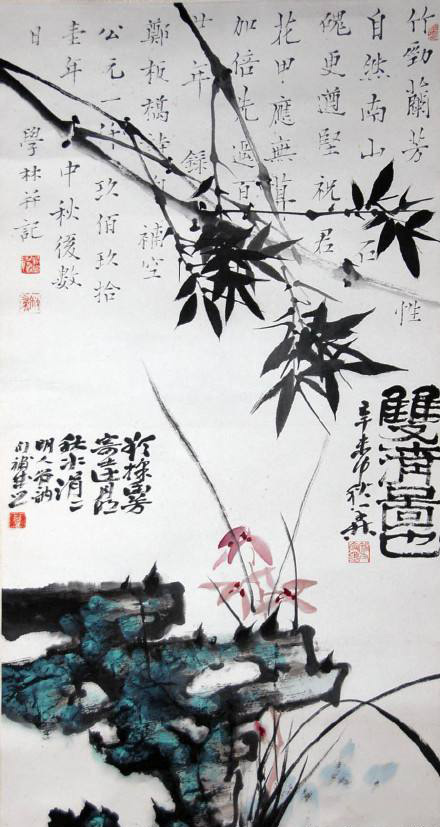 竹勁蘭芳性
自然南山石
塊更遒堅祝君
花甲應無算
加倍先過百
廿年 錄
鄭板橋詩句補空
公元一仟玖佰玖拾
壹年中秋後數
日
學林并記
雙清圖也
辛未中秋
秋水涓二
明人